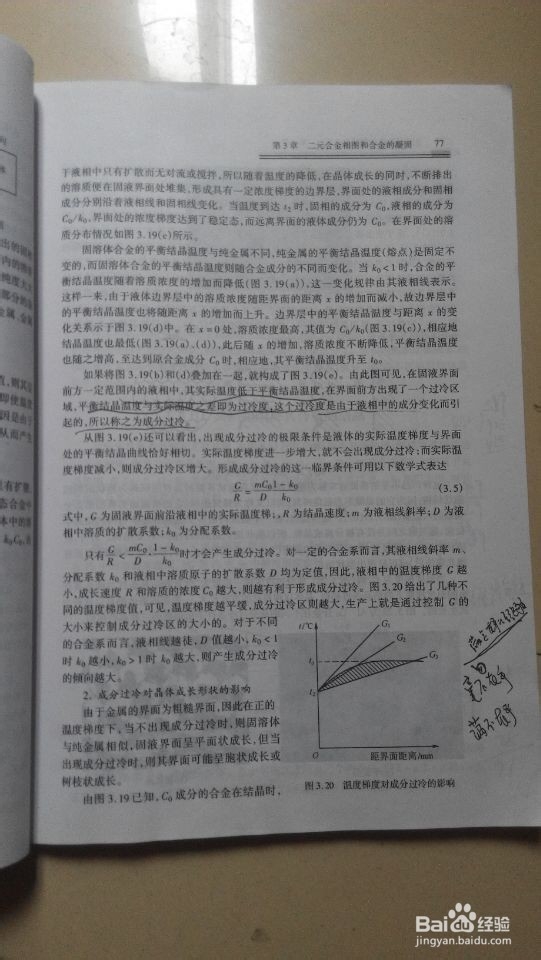 第3章 二元合金相图和合金的凝固 77
于液相中只有扩散而无对流或搅拌,所以随着温度的降低,在晶体成长的同时,不断排出
的溶质便在固液界面处堆集,形成具有一定浓度梯度的边界层,界面处的液相成分和固相
成分分别沿着液相线和固相线变化。当温度到达 t₂ 时,固相的成分为 C₀,液相的成分为
C₀/k₀,界面处的浓度梯度达到了稳定态,而远离界面的液体成分仍为 C₀。在界面处的溶
质分布情况如图 3.19(c)所示。
固溶体合金的平衡结晶温度与纯金属不同,纯金属的平衡结晶温度(熔点)是固定不
变的,而固溶体合金的平衡结晶温度则随合金成分的不同而变化。当 k₀<1 时,合金的平
衡结晶温度随着溶质浓度的增加而降低(图 3.19(a)),这一变化规律由其液相线表示。
这样一来,由于液体边界层中的溶质浓度随距界面的距离 x 的增加而减小,故边界层中
的平衡结晶温度也将随距离 x 的增加而上升。边界层中的平衡结晶温度与距离 x 的变
化关系示于图 3.19(d)中。在 x=0 处,溶质浓度最高,其值为 C₀/k₀(图 3.19(c)),相应地
结晶温度也最低(图 3.19(a)、(d)),此后随 x 的增加,溶质浓度不断降低,平衡结晶温度
也随之增高,至达到原合金成分 C₀ 时,相应地,其平衡结晶温度升至 t₀。
如果将图 3.19(b)和(d)叠加在一起,就构成了图 3.19(e)。由此图可见,在固液界面
前方一定范围内的液相中,其实际温度低于平衡结晶温度,在界面前方出现了一个过冷区
域,平衡结晶温度与实际温度之差即为过冷度,这个过冷度是由于液相中的成分变化而引
起的,所以称之为成分过冷。
从图 3.19(e)还可以看出,出现成分过冷的极限条件是液体的实际温度梯度与界面
处的平衡结晶曲线恰好相切。实际温度梯度进一步增大,就不会出现成分过冷;而实际温
度梯度减小,则成分过冷区增大。形成成分过冷的这一临界条件可用以下数学式表达
G/R = mC₀/D 1-k₀/k₀ (3.5)
式中,G 为固液界面前沿液相中的实际温度梯;,R 为结晶速度;m 为液相线斜率;D 为液
相中溶质的扩散系数;k₀ 为分配系数。
只有 G/R < mC₀/D · 1-k₀/k₀ 时才会产生成分过冷。对一定的合金系而言,其液相线斜率 m、
分配系数 k₀ 和液相中溶质原子的扩散系数 D 均为定值,因此,液相中的温度梯度 G 越
小,成长速度 R 和溶质的浓度 C₀ 越大,则越有利于形成成分过冷。图 3.20 给出了几种不
同的温度梯度值,可见,温度梯度越平缓,成分过冷区则越大,生产上就是通过控制 G 的
大小来控制成分过冷区的大小的。对于不同
的合金系而言,液相线越徒,D 值越小,k₀<1
时 k₀ 越小,k₀>1 时 k₀ 越大,则产生成分过冷
的倾向越大。
2. 成分过冷对晶体成长形状的影响
由于金属的界面为粗糙界面,因此在正的
温度梯度下,当不出现成分过冷时,则固溶体
与纯金属相似,固液界面呈平面状成长,但当
出现成分过冷时,则其界面可能呈胞状成长或
树枝状成长。
由图 3.19 已知,C₀ 成分的合金在结晶时,
t/℃
G₁
G₂
G₃
t₀
t₂
O
距界面距离/mm
图 3.20 温度梯度对成分过冷的影响
Baidu经验
jingyan.baidu.com